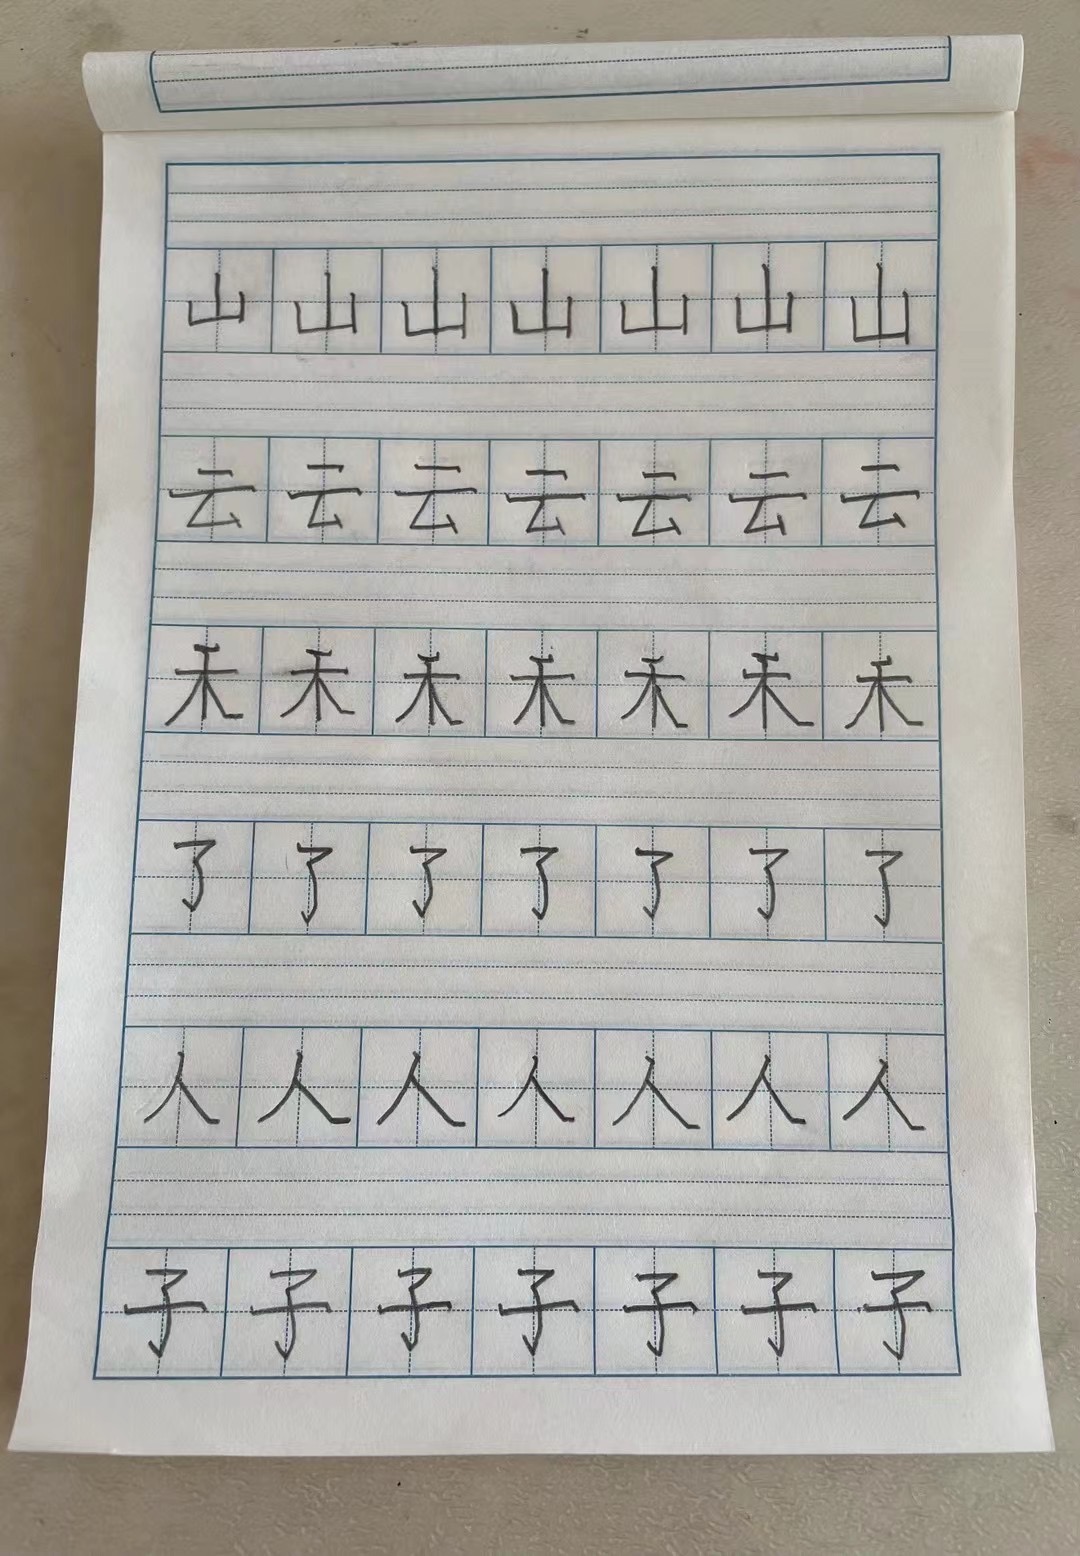 山山山山山山山
云云云云云云云
禾禾禾禾禾禾禾
了了了了了了了
人人人人人人人
子子子子子子子